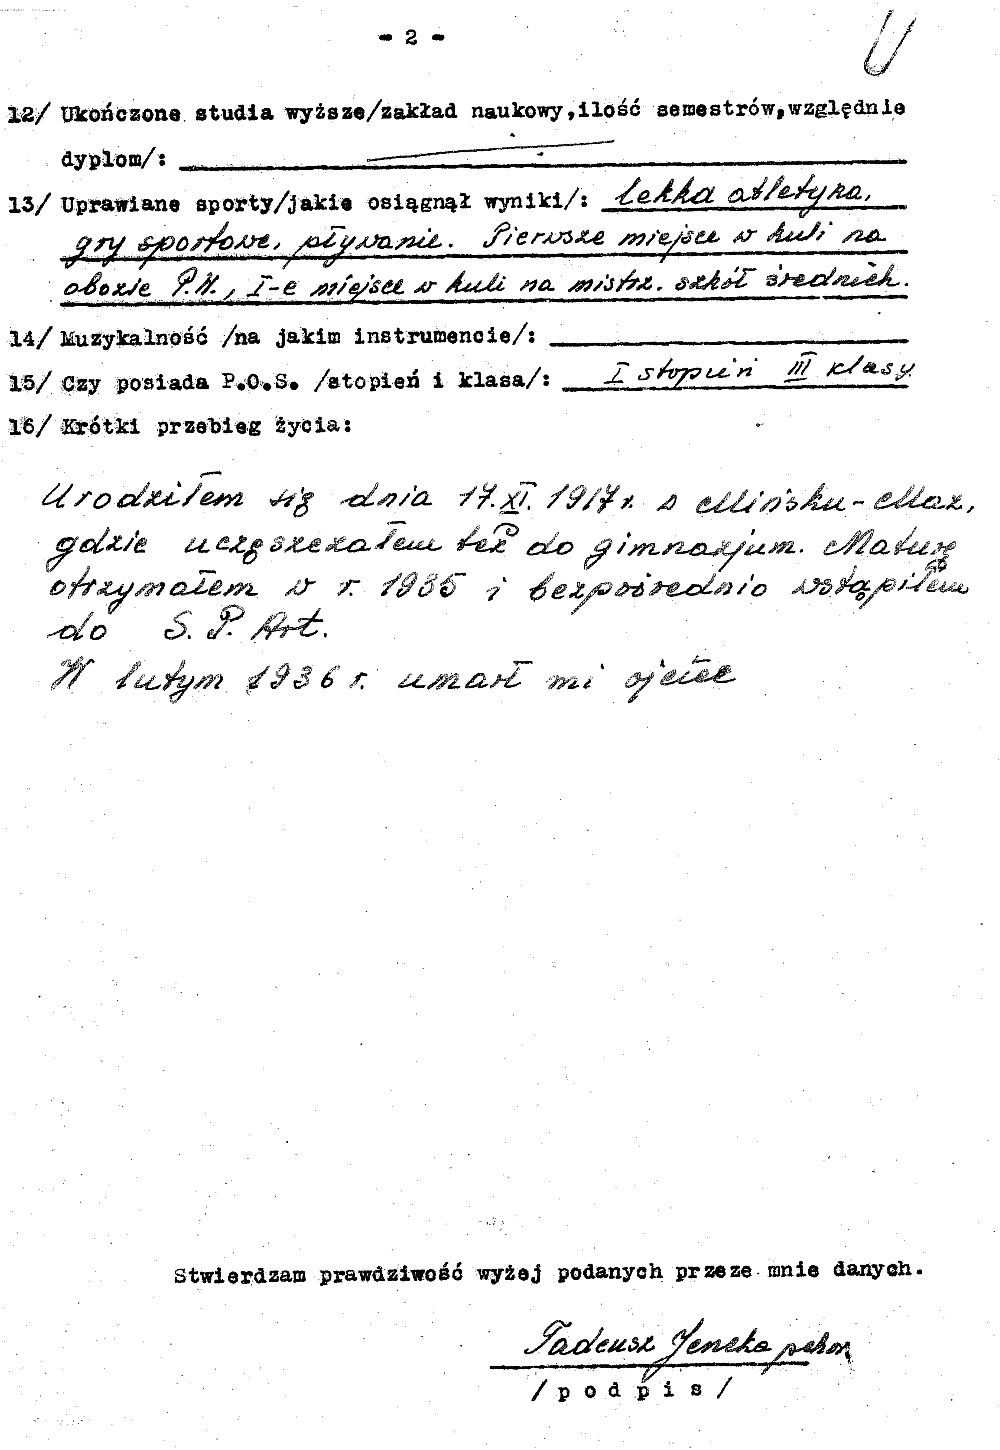 - 2 -
12/ Ukończone studia wyższe/zakład naukowy,ilość semestrów,względnie
dyplom/:
13/ Uprawiane sporty/jakie osiągnął wyniki/: lekka atletyka,
gry sportowe, pływanie. Pierwsze miejsce w kuli na
obozie P.W., I-e miejsce w kuli na mistrz. szkół średnich.
14/ Muzykalność /na jakim instrumencie/:
15/ Czy posiada P.O.S. /stopień i klasa/: I stopień III klasy
16/ Krótki przebieg życia:
Urodziłem się dnia 17.XI. 1917 r. w Mińsku-Maz,
gdzie uczęszczałem też do gimnazjum. Maturę
otrzymałem w r. 1935 i bezpośrednio wstąpiłem
do S. P. Art.
W lutym 1936 r. umarł mi ojciec
Stwierdzam prawdziwość wyżej podanych przeze mnie danych.
Tadeusz Jencka pchor.
/podpis/